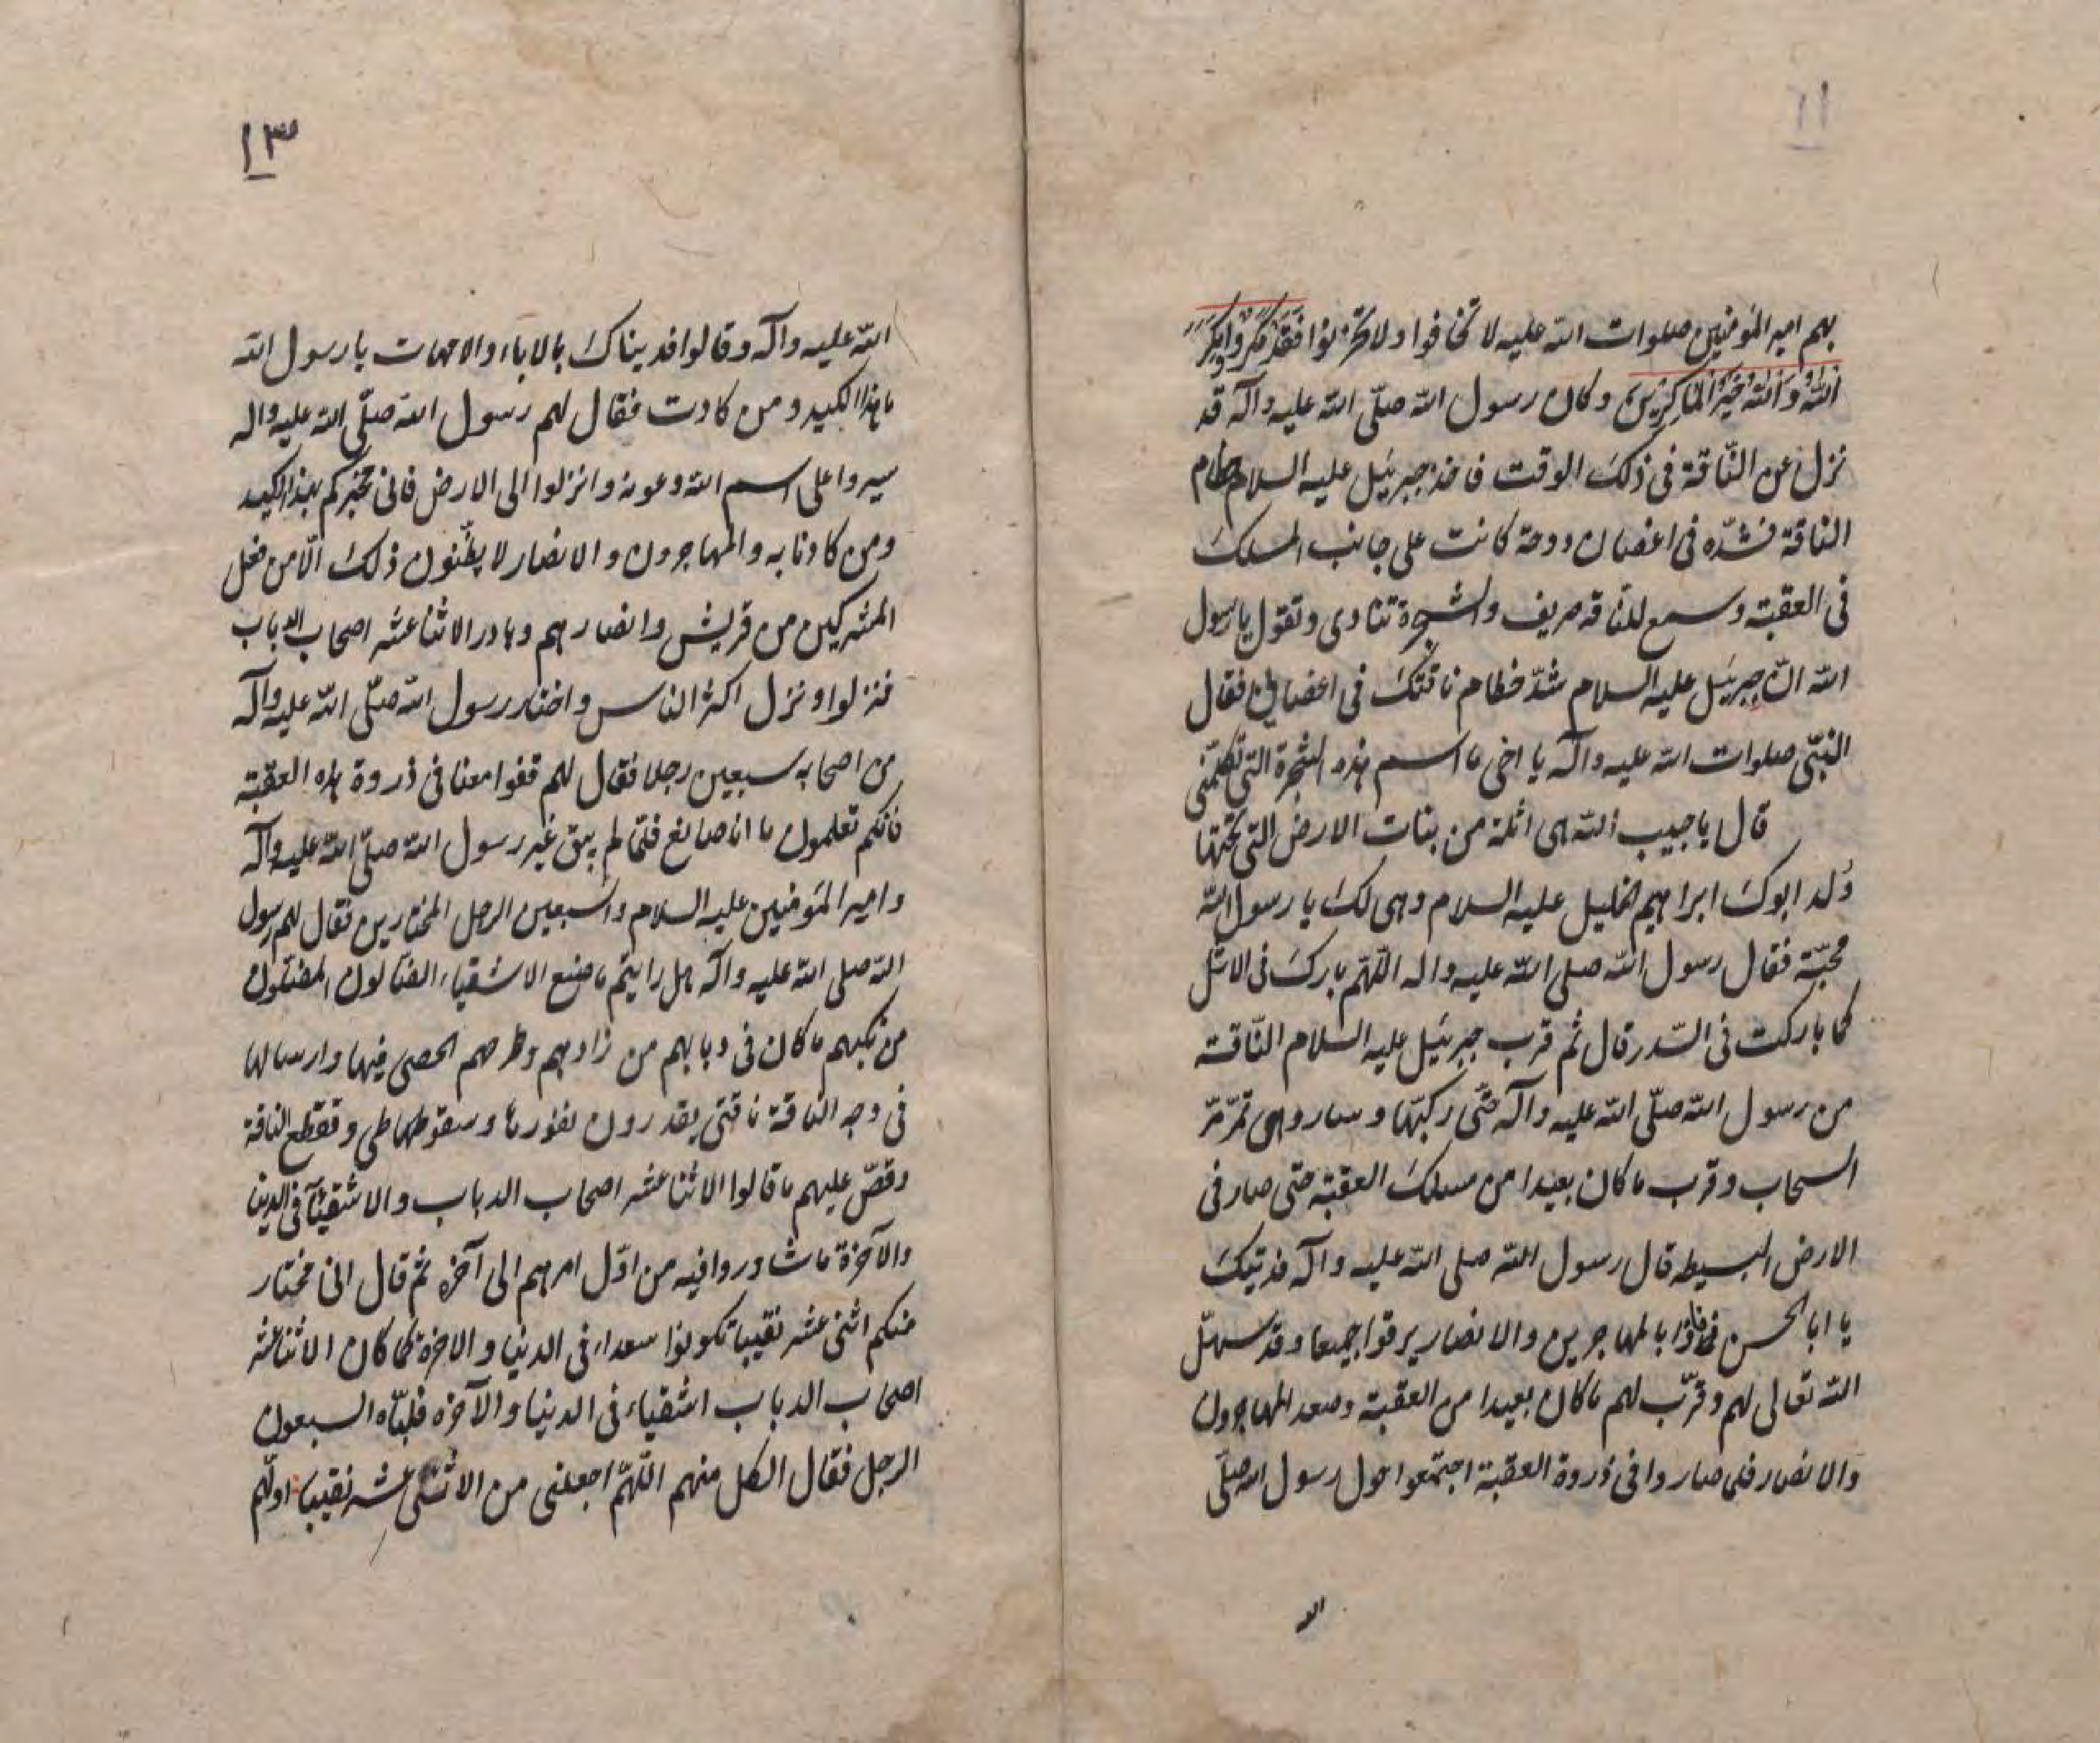 ١٢
بهم امير المؤمنين صلوات الله عليه لا تخافوا ولا تحزنوا فقد مكروا ومكر
الله والله خير الماكرين وكان رسول الله صلّى الله عليه وآله قد
نزل عن النّاقة فى ذلك الوقت فاخذ جبرئيل عليه السلام خطام
الناقة فشدّه فى اغصان دوحة كانت على جانب المسلك
فى العقبة وسمع للناقه صريف والشجرة تنادى وتقول يا رسول
الله انّ جبرئيل عليه السلام شدّ خطام ناقتك فى اغصانى فقال
النبىّ صلوات الله عليه وآله يا اخى ما اسم هذه الشجرة التى تكلّمنى
قال يا حبيب الله هى اثلة من بنات الارض التى تحتها
ولد ابوك ابراهيم الخليل عليه السلام وهى لك يا رسول الله
محبّة فقال رسول الله صلى الله عليه واله اللّهمّ بارك فى الاثل
كما باركت فى السّدر قال ثم قرب جبرئيل عليه السلام النّاقة
من رسول الله صلّى الله عليه وآله حتّى ركبها وسار وهى تمرّ مرّ
السحاب وقرب ما كان بعيدا من مسلك العقبة حتى صار فى
الارض البسيطه قال رسول الله صلى الله عليه وآله فديتك
يا ابا الحسن بالمهاجرين والانصار يرقوا جميعا وقد سهّل
الله تعالى لهم وقرّب لهم ما كان بعيدا من العقبة وصعد المهاجرون
والانصار فلما صاروا فى ذروة العقبة اجتمعوا حول رسول الله صلّى
الله
١٣
الله عليه وآله وقالوا فديناك بالاباء والامهات يا رسول الله
ما هذا الكيد ومن كادت فقال لهم رسول الله صلّى الله عليه واله
سيروا على اسم الله وعونه وانزلوا الى الارض فانى مخبركم بهذا الكيد
ومن كادنا به والمهاجرون والانصار لا يظنّون ذلك الّا من فعل
المشركين من قريش وانصارهم وبادر الاثنا عشر اصحاب الدباب
فنزلوا ونزل اكثر الناس واختار رسول الله صلّى الله عليه وآله
من اصحابه سبعين رجلا فقال لهم قفوا معنا فى ذروة هذه العقبة
فانكم تعلمون ما انا صانع فلمّا لم يبق غير رسول الله صلّى الله عليه وآله
وامير المؤمنين عليه السلام والسبعين الرجل المختارين فقال لهم رسول
الله صلى الله عليه وآله هل رايتم ما صنع الاشقياء الضالون المضلون
من كبهم ما كان فى دبابهم من زادهم وطرحهم الحصى فيها وارسالها
فى وجه الناقة ناقتى يقدرون نفورها وسقوطها وتقطع الناقة
وقصّ عليهم ما قالوا الاثنا عشر اصحاب الدباب والاشقياء فى الدنيا
والآخرة ما شاوروا فيه من اوّل امرهم الى آخره ثم قال انى مختار
منكم اثنى عشر نقيبا تكونوا سعداء فى الدنيا والاخرة كما كان الاثنا عشر
اصحاب الدباب اشقياء فى الدنيا والآخره فلبّاه السبعون
الرجل فقال الكل منهم اللّهمّ اجعلنى من الاثنى عشر نقيبا اولهم